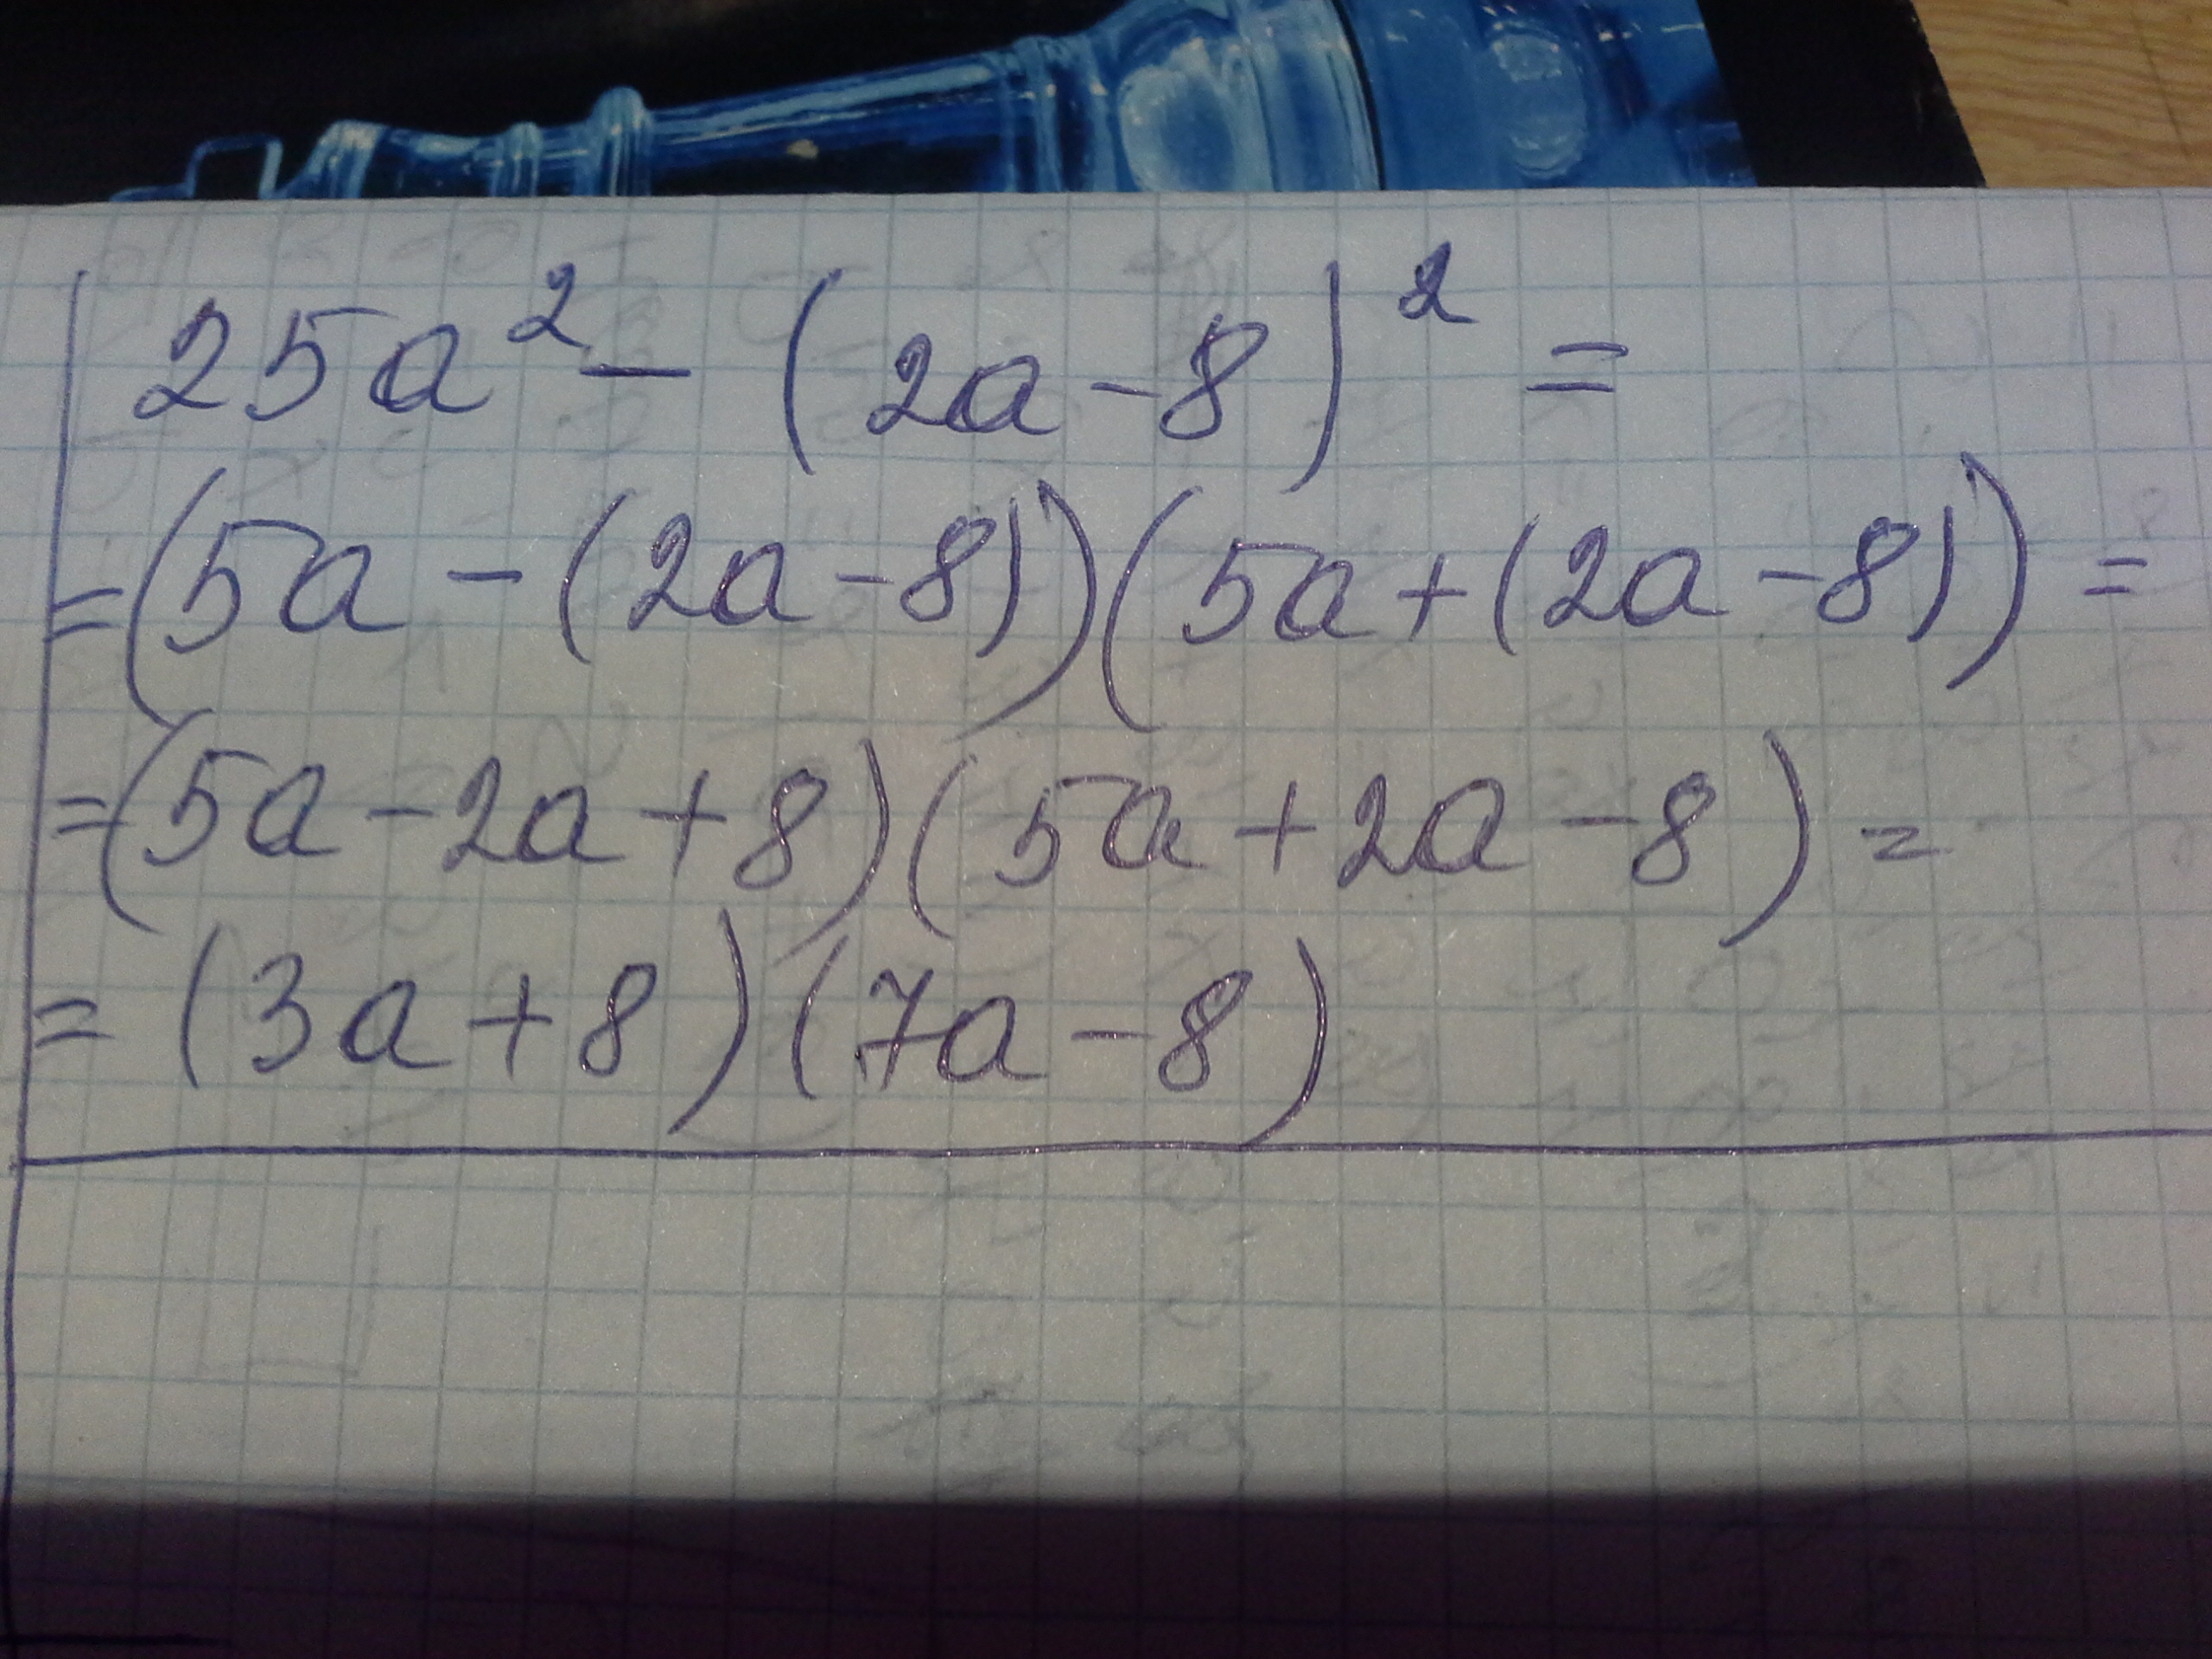 25a² - (2a - 8)² =
= (5a - (2a - 8))(5a + (2a - 8)) =
= (5a - 2a + 8)(5a + 2a - 8) =
= (3a + 8)(7a - 8)